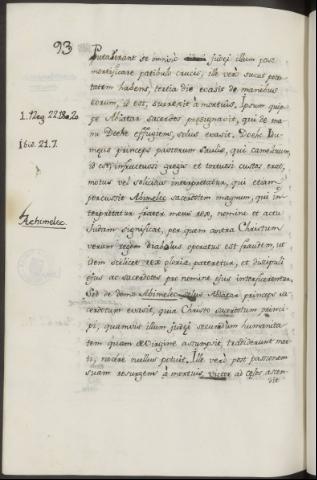 93
Putaverant se omnino iudęi illum posse
mortificare patibulo crucis, ille verò suæ potes
tatem habens, tertia die evasit de manibus
eorum, id est, surrexit à mortuis. Ipsum quip
pe Abiatar sacerdos præsignavit, qui de ma
nu Doehc effugiens, solus evasit. Doehc Idu
meus princeps pastorum Saulis, qui camelorum,
id est, infructuosi gregis et tortuosi custos erat,
motus vel solicitus interpretatur, qui etiam
percussit Abimelec sacerdotem magnum, qui in
terpretatur frater meus rex, nomine et actu
Iudam significat, per quem contra Christum
verum regem diabolus operatus est fraudem, ut
idem scilicet rex gloriæ pateretur, et discipuli
ejus ac sacerdotes pro nomine ejus interficerentur.
Sed de domo Abimelec solus Abiatar princeps sa
cerdotum evasit, quia Christo sacerdotum princi
pi, quamvis illum judęi secundum humanita
tem quam ex Virgine assumpsit, tradiderunt mor
ti, nocere nullus potuit. Ille verò post passionem
suam resurgens à mortuis, victor ad cęlos ascen
dit
1. Reg 22.18.&20
Ibid. 21.7.
Achimelec.